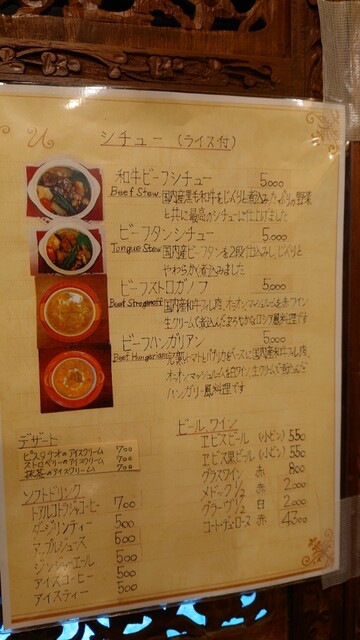 シチュー (ライス付)
和牛ビーフシチュー 5,000
Beef Stew 国内産黒毛和牛をじっくりと煮込みたっぷりの野菜
と共に最高のシチューに仕上げました
ビーフタンシチュー 5,000
Tongue Stew 国内産ビーフタンを2段仕込みし、じっくりと
やわらかく煮込みました
ビーフストロガノフ 5,000
Beef Stroganoff 国内産和牛フィレ肉、オニオン、マッシュルームを赤ワイン
生クリームで煮込んだまろやかなロシア風料理です
ビーフハンガリアン 5,000
Beef Hungarian 完熟トマトとパプリカをベースに国内産和牛フィレ肉、
オニオン、マッシュルームを白ワイン、生クリームで煮込んだ
ハンガリー風料理です
デザート
ピスタチオのアイスクリーム 700
ストロベリーのアイスクリーム 700
抹茶のアイスクリーム 700
ソフトドリンク
トアルコトラジャコーヒー 700
ダージリンティー 500
アップルジュース 600
ジンジャーエール 500
アイスコーヒー 500
アイスティー 500
ビール、ワイン
ヱビスビール (小ビン) 550
ヱビス黒ビール (小ビン) 550
グラスワイン 赤 800
メドック 1/2 赤 2,000
グラーヴ 1/2 白 2,000
コート・デュ・ローヌ 赤 4300